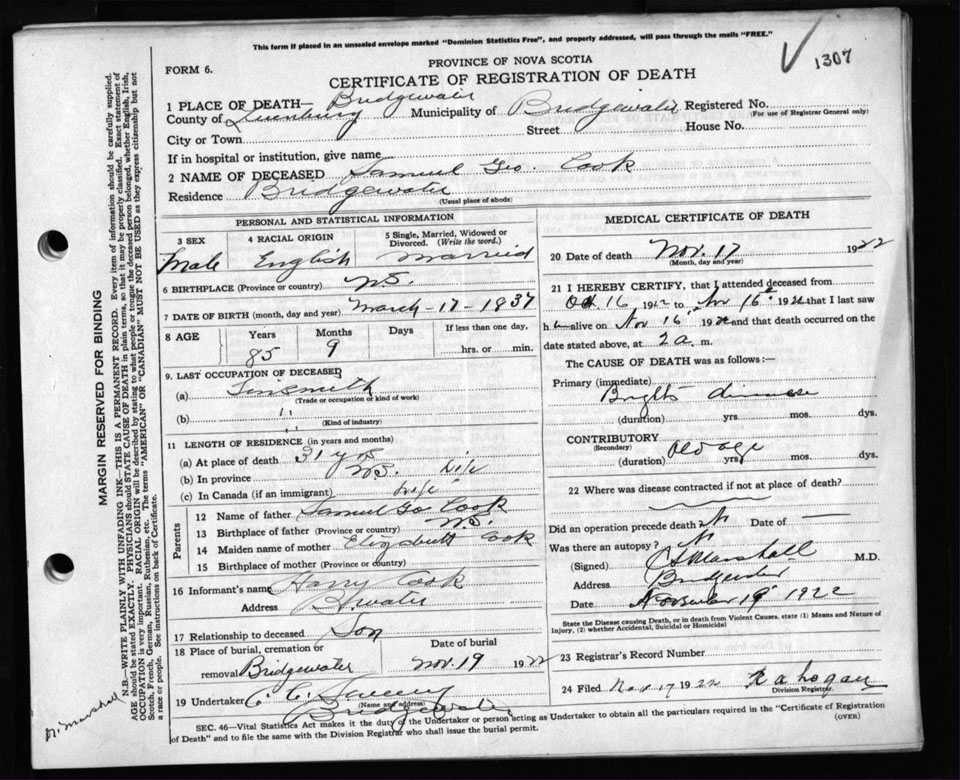 This form if placed in an unsealed envelope marked "Dominion Statistics Free", and properly addressed, will pass through the mails "FREE."
1307
FORM 6.
PROVINCE OF NOVA SCOTIA
CERTIFICATE OF REGISTRATION OF DEATH
1 PLACE OF DEATH— Bridgewater
County of Lunenburg Municipality of Bridgewater Registered No.
(For use of Registrar General only)
City or Town Street House No.
If in hospital or institution, give name
2 NAME OF DECEASED Samuel Geo Cook
Residence Bridgewater
(Usual place of abode)
PERSONAL AND STATISTICAL INFORMATION
3 SEX 4 RACIAL ORIGIN 5 Single, Married, Widowed or Divorced. (Write the word.)
Male English Married
6 BIRTHPLACE (Province or country) N.S.
7 DATE OF BIRTH (month, day and year) March-17-1837
8 AGE Years Months Days If less than one day,
85 9 hrs. or min.
9. LAST OCCUPATION OF DECEASED
(a) Tinsmith
(Trade or occupation or kind of work)
(b) "
(Kind of industry)
11 LENGTH OF RESIDENCE (in years and months)
(a) At place of death 31 yrs
(b) In province N.S. Life
(c) In Canada (if an immigrant) Life
Parents
12 Name of father Samuel Go Cook
13 Birthplace of father (Province or country) N.S.
14 Maiden name of mother Elizabeth Cook
15 Birthplace of mother (Province or country)
16 Informant's name Harry Cook
Address B.water
17 Relationship to deceased Son
18 Place of burial, cremation or removal Bridgewater
Date of burial
Nov. 19 1922
19 Undertaker
(Name and address)
Bridgewater
MEDICAL CERTIFICATE OF DEATH
20 Date of death Nov. 17 1922
(Month, day and year)
21 I HEREBY CERTIFY, that I attended deceased from
Oct 16 1922 to Nov 16 1922 that I last saw
h alive on Nov 16 1922 and that death occurred on the
date stated above, at 2 a. m.
The CAUSE OF DEATH was as follows :—
Primary (immediate)
Brights disease
(duration) yrs. mos. dys.
CONTRIBUTORY
(Secondary) Old age
(duration) yrs. mos. dys.
22 Where was disease contracted if not at place of death?
Did an operation precede death? No Date of —
Was there an autopsy? No
(Signed) Marshall M.D.
Address Bridgewater
Date November 19 1922
State the Disease causing Death, or in death from Violent Causes. state (1) Means and Nature of Injury, (2) whether Accidental, Suicidal or Homicidal
23 Registrar's Record Number
24 Filed Nov 17 1922 Logan
Division Registrar.
SEC. 46—Vital Statistics Act makes it the duty of the Undertaker or person acting as Undertaker to obtain all the particulars required in the "Certificate of Registration
of Death" and to file the same with the Division Registrar who shall issue the burial permit. (OVER)
MARGIN RESERVED FOR BINDING
N.B.—WRITE PLAINLY WITH UNFADING INK—THIS IS A PERMANENT RECORD. Every item of information should be carefully supplied.
AGE should be stated EXACTLY. PHYSICIANS should STATE CAUSE OF DEATH in plain terms, so that it may be properly classified. Exact statement of
OCCUPATION is very important. RACIAL ORIGIN will be described by stating to what people or tongue the deceased person belonged, whether English, Irish,
Scotch, French, German, Russian, Ruthenian, etc. The terms "AMERICAN" OR "CANADIAN" MUST NOT BE USED as they express citizenship but not
a race or people. See instructions on back of Certificate.
Marshall